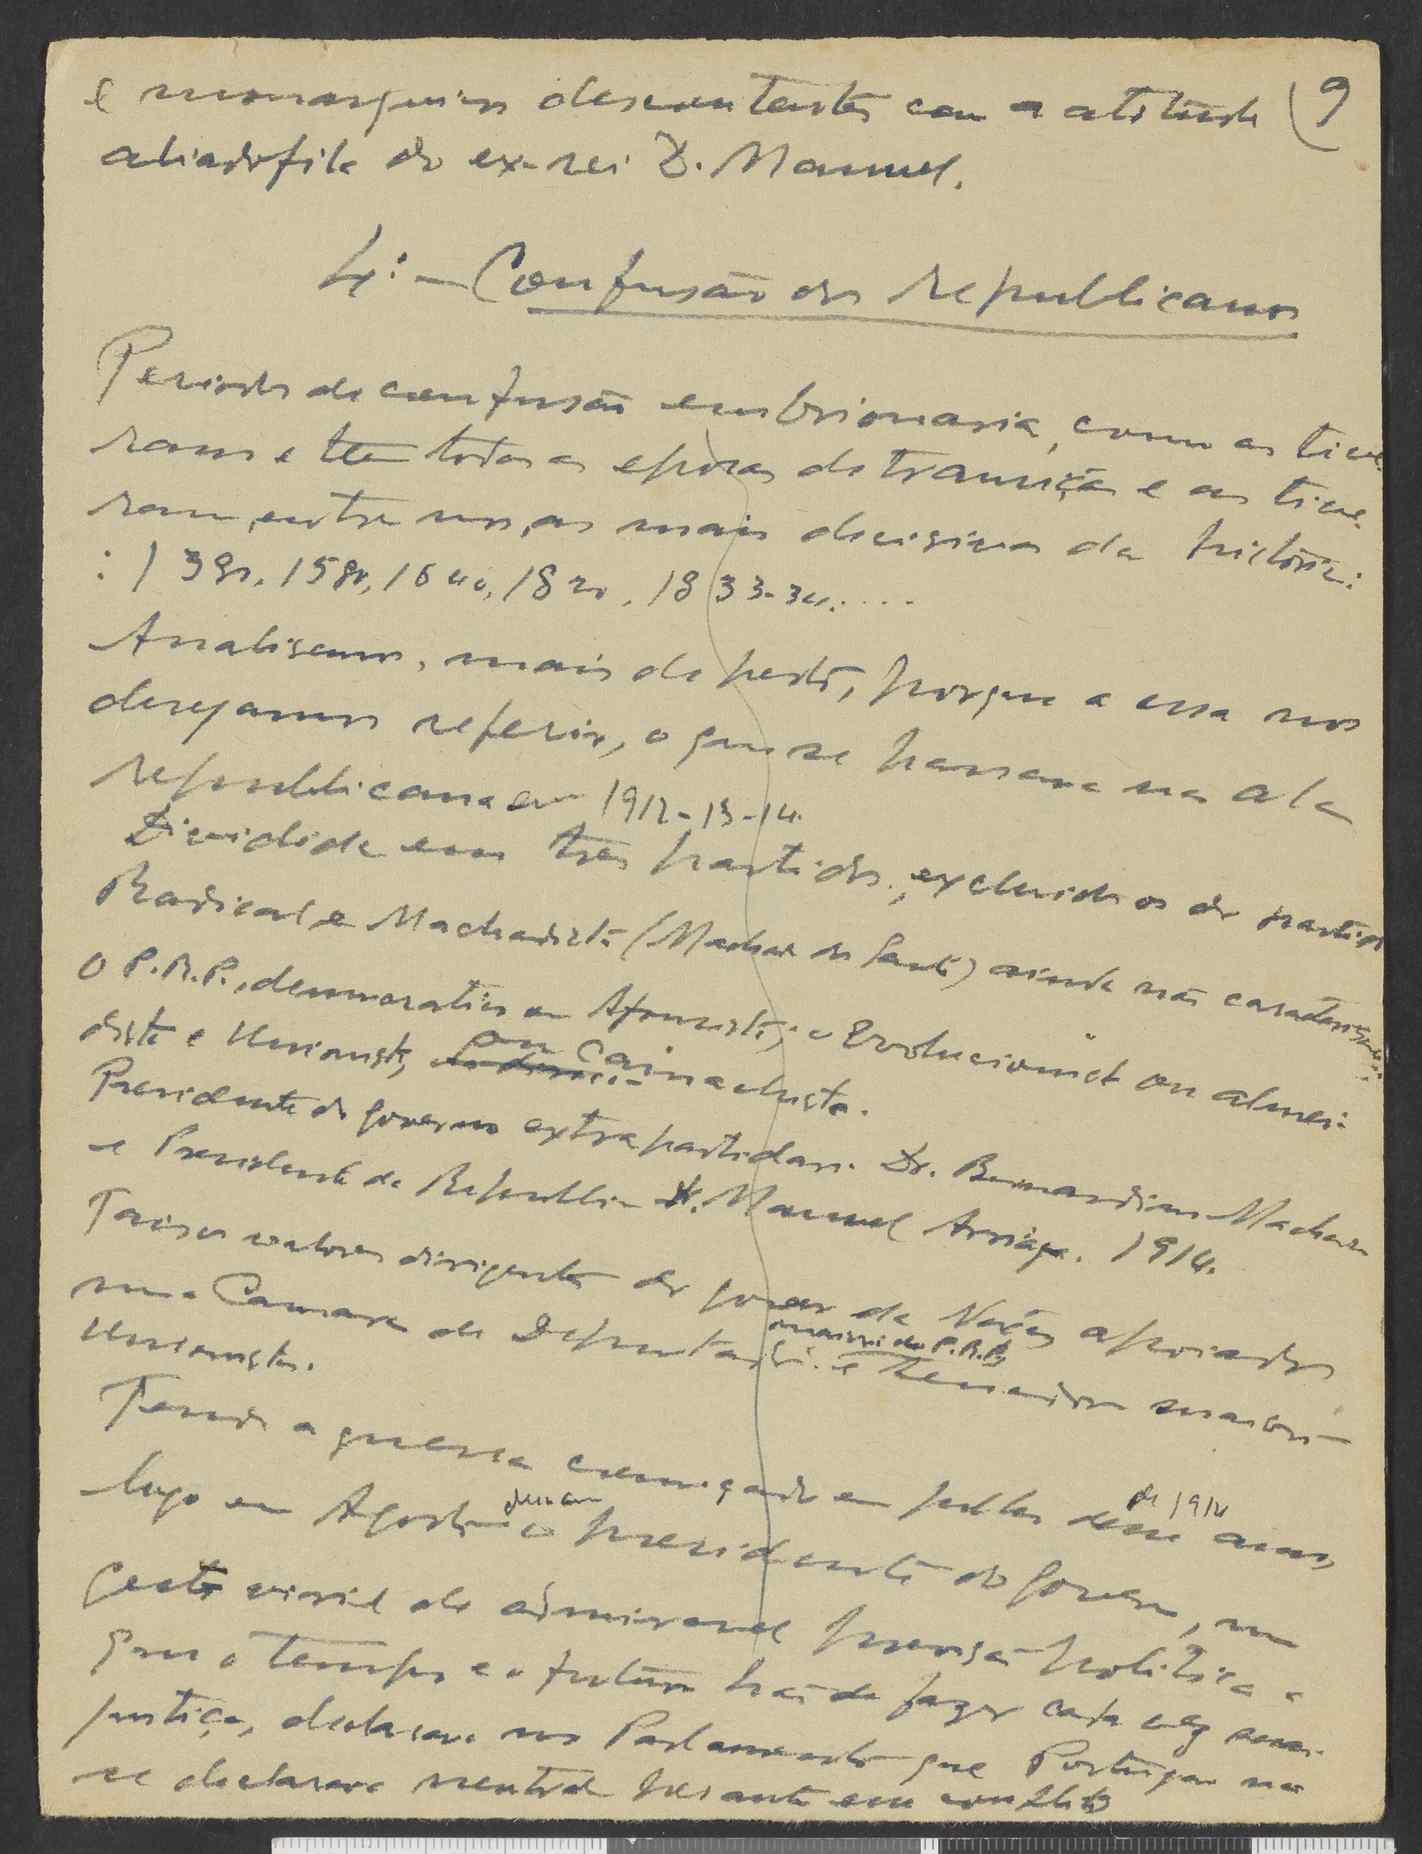 9
e monarquicos descontentes com a atitude
aliadofila do ex-rei D. Manuel.
4º - Confusão dos republicanos
Periodo de confusão embrionaria, como as tive-
ram e teem todas as epocas de transição e as tive-
ram, entre nós, as mais decisivas da historia:
: 1380, 1580, 1640, 1820, 1833-34.....
Analisemos, mais de perto, porque a essa nos
desejamos referir, o que se passava na ala
republicana em 1912-13-14.
Dividida em tres partidos, excluidos os do partido
Radical e Machadista (Machado dos Santos) ainda não
O P.R.P., democratico ou Afonsista; o Evolucionista ou almei-
dista e Unionista, ou Camachista.
Presidente do governo extrapartidario Dr. Bernardino Machado
e Presidente da Republica Dr. Manuel Arriaga. 1914.
valores dirigentes do governo da Nação apoiados
numa Camara de Deputados maioria do P.R.P. e Senadores maioria
unionista.
Tendo a guerra começado em Julho desse ano, de 1914
logo em Agosto o presidente do Governo, num
gesto viril de admiravel previsão politica a
que o tempo e o futuro hão de fazer cada vez mais
justiça, declarava no Parlamento que Portugal não
se declarava neutral perante em conflito